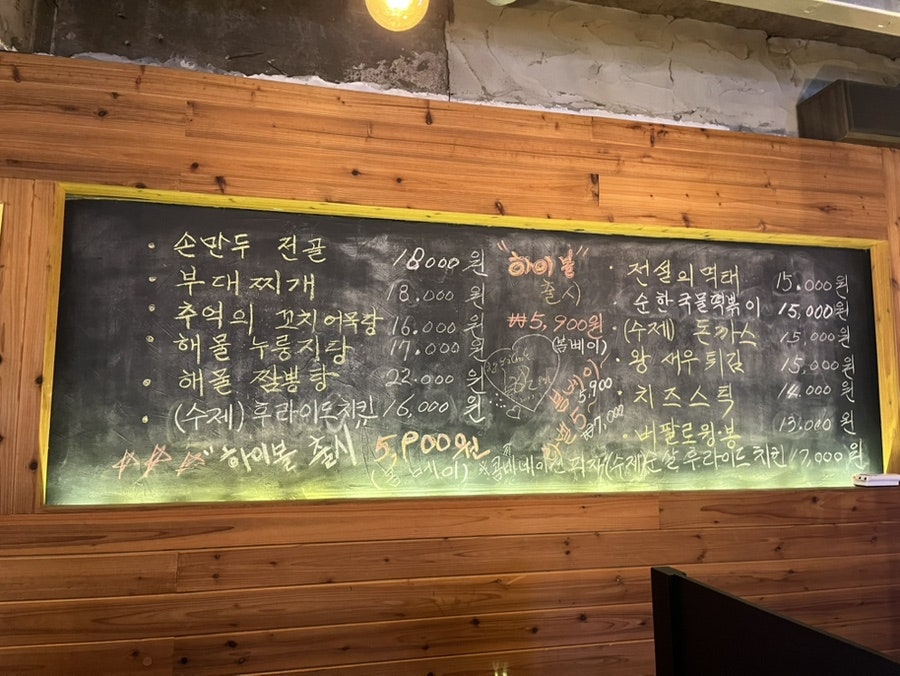 손만두 전골 18000원
부대찌개 18.000원
추억의 꼬치어묵탕 16.000원
해물 누룽지탕 17.000원
해물 짬뽕탕 22.000원
(수제)후라이드치킨 16,000원
"하이볼 출시 5,900원
(봄베이)
"하이볼"
출시
₩5,900원
(봄베이)
봄베이
5,900
₩7,000
전설의먹태 15.000원
순한국물떡볶이 15,000원
(수제) 돈까스 15,000원
왕새우튀김 15,000원
치즈스틱 14.000원
버팔로윙·봉 13.000원
콤비네이션 피자
(수제)순살후라이드치킨 17,000원